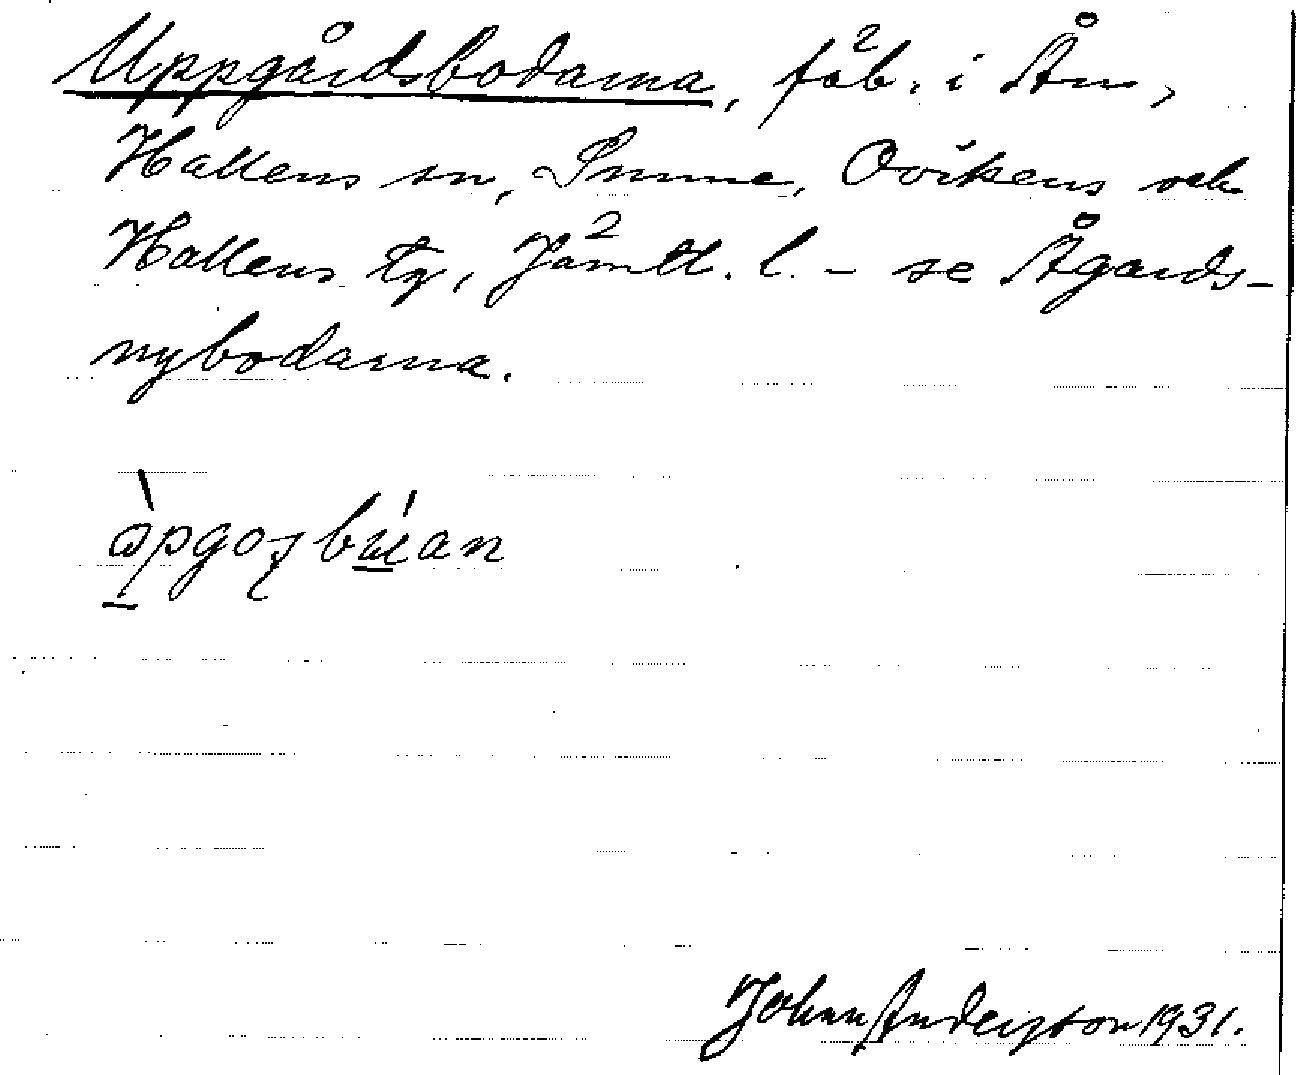 Uppgårdsbodarna, fäb. i Ån,
Hallens sn, Sunne, Ovikens och
Hallens tg, Jämtl. l. - se Ågårds-
nybodarna.
Johan Andersson 1931.